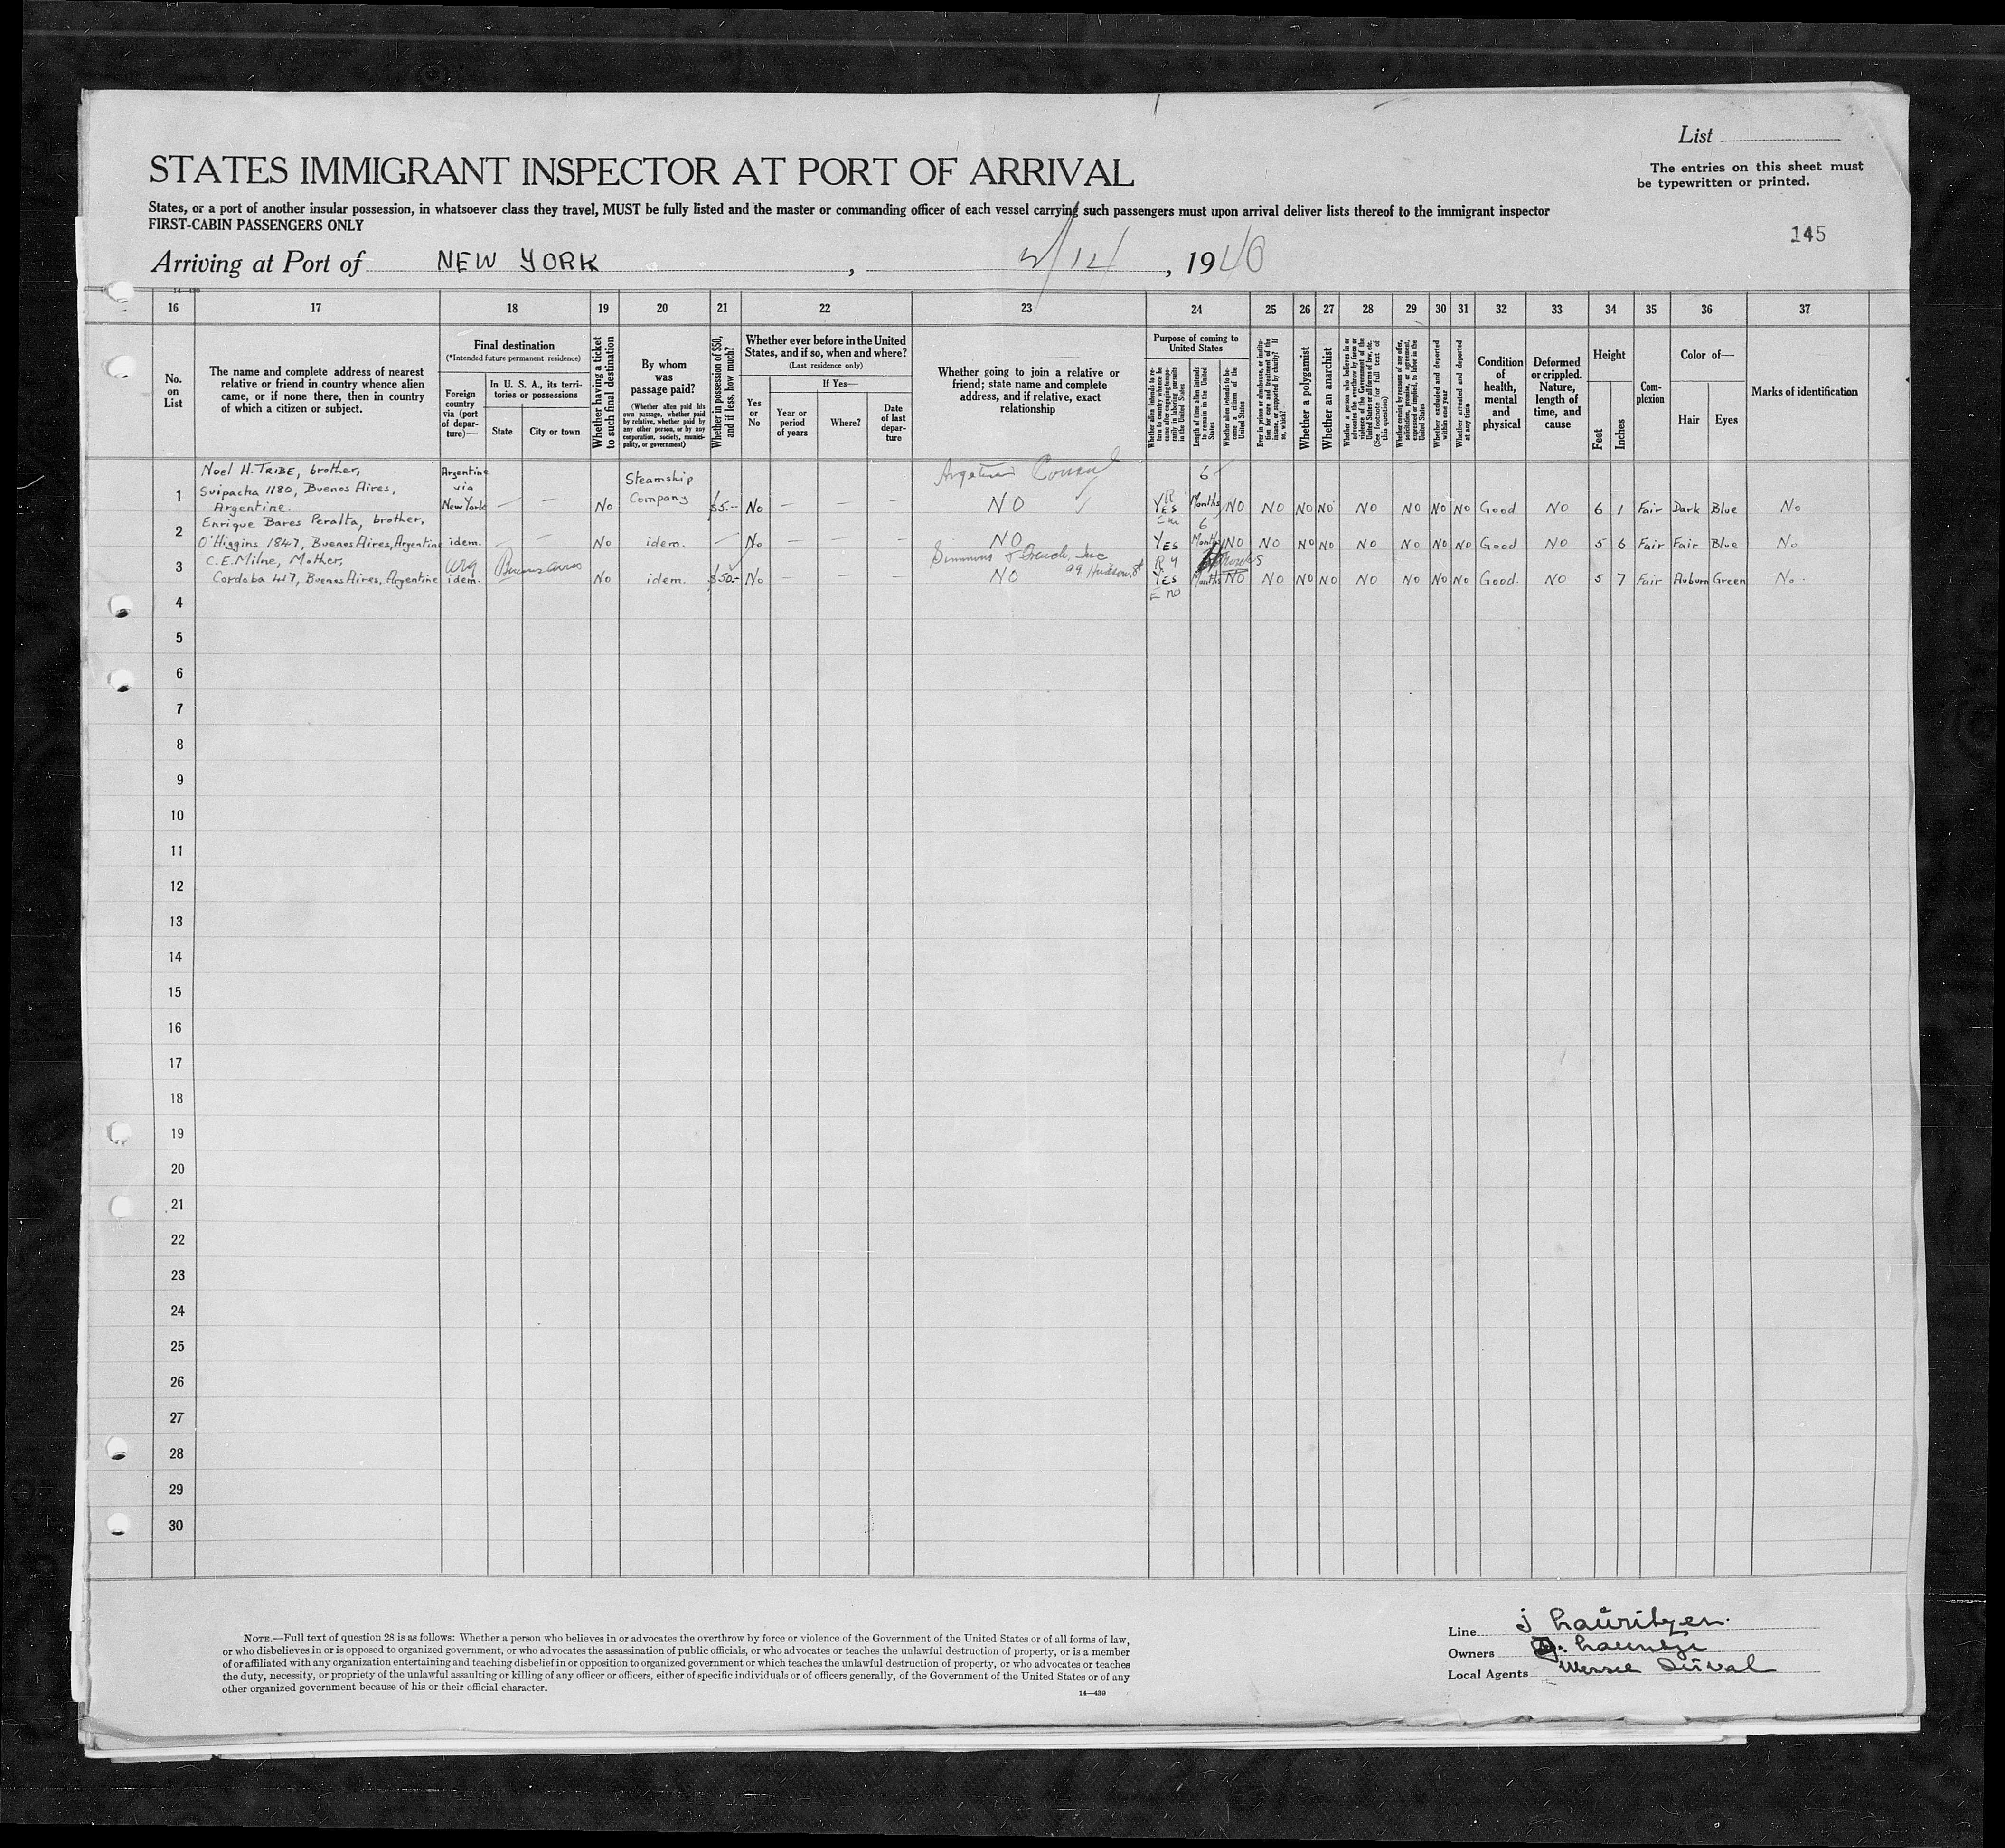 List
STATES IMMIGRANT INSPECTOR AT PORT OF ARRIVAL
The entries on this sheet must
be typewritten or printed.
States, or a port of another insular possession, in whatsoever class they travel, MUST be fully listed and the master or commanding officer of each vessel carrying such passengers must upon arrival deliver lists thereof to the immigrant inspector
FIRST-CABIN PASSENGERS ONLY
145
Arriving at Port of NEW YORK , , 1940
16 17 18 19 20 21 22 23 24 25 26 27 28 29 30 31 32 33 34 35 36 37
No. on List
The name and complete address of nearest
relative or friend in country whence alien
came, or if none there, then in country
of which a citizen or subject.
Final destination
(*Intended future permanent residence)
Foreign country via (port of departure)—
In U. S. A., its territories or possessions
State
City or town
Whether having a ticket to such final destination
By whom was passage paid?
(Whether alien paid his own passage, whether paid by relative, whether paid by any other person, or by any corporation, society, municipality, or government)
Whether in possession of $50, and if less, how much?
Whether ever before in the United
States, and if so, when and where?
(Last residence only)
Yes or No
If Yes—
Year or period of years
Where?
Date of last departure
Whether going to join a relative or
friend; state name and complete
address, and if relative, exact
relationship
Purpose of coming to
United States
Whether alien intends to return to country whence he came after engaging temporarily in laboring pursuits in the United States
Length of time alien intends to remain in the United States
Whether alien intends to become a citizen of the United States
Ever in prison or almshouse, or institution for care and treatment of the insane, or supported by charity? If so, which?
Whether a polygamist
Whether an anarchist
Whether a person who believes in or advocates the overthrow by force or violence of the Government of the United States or all forms of law, etc. (See footnote for full text of this question)
Whether coming by reason of any offer, solicitation, promise, or agreement, expressed or implied, to labor in the United States
Whether excluded and deported within one year
Whether arrested and deported at any time
Condition of health, mental and physical
Deformed or crippled. Nature, length of time, and cause
Height
Feet
Inches
Complexion
Color of—
Hair
Eyes
Marks of identification
Noel H. TRIBE, brother,
Suipacha 1180, Buenos Aires,
Argentine.
1 Argentine via New York — — No Steamship Company $5.- No — — — Consul NO YES 6 Months NO NO NO NO NO NO NO NO Good NO 6 1 Fair Dark Blue No
Enrique Bares Peralta, brother,
2 O'Higgins 1847, Buenos Aires, Argentine idem. — — No idem. — No — — — NO YES 6 Months NO NO NO NO NO NO NO NO Good NO 5 6 Fair Fair Blue No
C.E. Milne, Mother,
3 Cordoba 447, Buenos Aires, Argentine Arg idem. Buenos Aires No idem. $50.- No Simmons Inc Hudson St NO YES Months NO NO NO NO NO NO NO NO Good. NO 5 7 Fair Auburn Green No.
4
5
6
7
8
9
10
11
12
13
14
15
16
17
18
19
20
21
22
23
24
25
26
27
28
29
30
NOTE.—Full text of question 28 is as follows: Whether a person who believes in or advocates the overthrow by force or violence of the Government of the United States or of all forms of law,
or who disbelieves in or is opposed to organized government, or who advocates the assassination of public officials, or who advocates or teaches the unlawful destruction of property, or is a member
of or affiliated with any organization entertaining and teaching disbelief in or opposition to organized government or which teaches the unlawful destruction of property, or who advocates or teaches
the duty, necessity, or propriety of the unlawful assaulting or killing of any officer or officers, either of specific individuals or of officers generally, of the Government of the United States or of any
other organized government because of his or their official character.
14—439
Line J Lauritzen.
Owners J. Lauritzen
Local Agents Wessel Duval